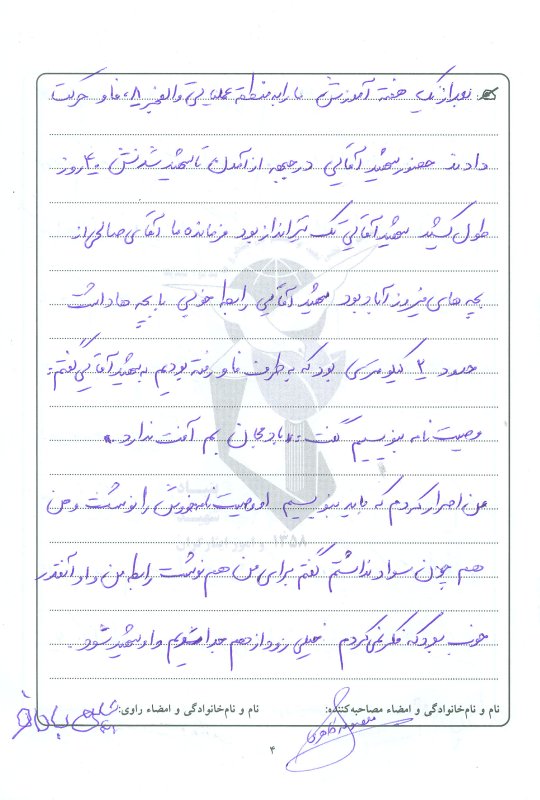 بعد از یک هفته آموزش ما را به منطقه عملیاتی والفجر ۸، فاو حرکت
دادند حضور شهید آقائی در جبهه از آمدن تا شهید شدنش ۴۰ روز
طول کشید شهید آقائی تک تیرانداز بود فرمانده ما آقای صالحی از
بچه های فیروزآباد بود شهید آقائی رابط خوبی با بچه ها داشت
حدود ۳ کیلومتری بود که به طرف فاو رفته بودیم به شهید آقائی گفتم:
وصیت نامه بنویسیم گفت: «بادمجان بم آفت ندارد.»
من اصرار کردم که باید بنویسیم او وصیت نامه خودش را نوشت و من
هم چون سواد نداشتم گفتم برای من هم نوشت رابطه من و او آنقدر
خوب بود که فکر نمی کردم خیلی زود از هم جدا شویم و او شهید شود.
بنیاد شهید
و امور ایثارگران ۱۳۵۸
نام و نام خانوادگی و امضاء مصاحبه کننده: نام و نام خانوادگی و امضاء راوی:
۴